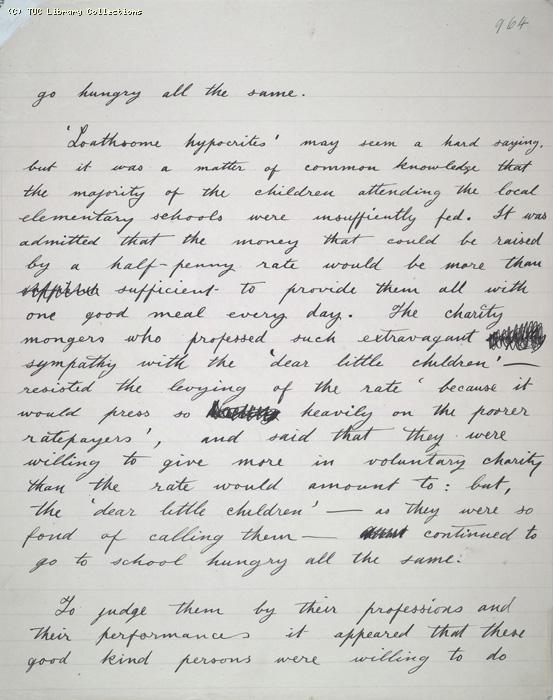 (C) TUC Library Collections
964
go hungry all the same.
'Loathsome hypocrites' may seem a hard saying,
but it was a matter of common knowledge that
the majority of the children attending the local
elementary schools were insufficiently fed. It was
admitted that the money that could be raised
by a half-penny rate would be more than
sufficient to provide them all with
one good meal every day. The charity
mongers who professed such extravagant
sympathy with the 'dear little children' —
resisted the levying of the rate 'because it
would press so heavily on the poorer
ratepayers', and said that they were
willing to give more in voluntary charity
than the rate would amount to: but,
the 'dear little children' — as they were so
fond of calling them — continued to
go to school hungry all the same.
To judge them by their professions and
their performances it appeared that these
good kind persons were willing to do